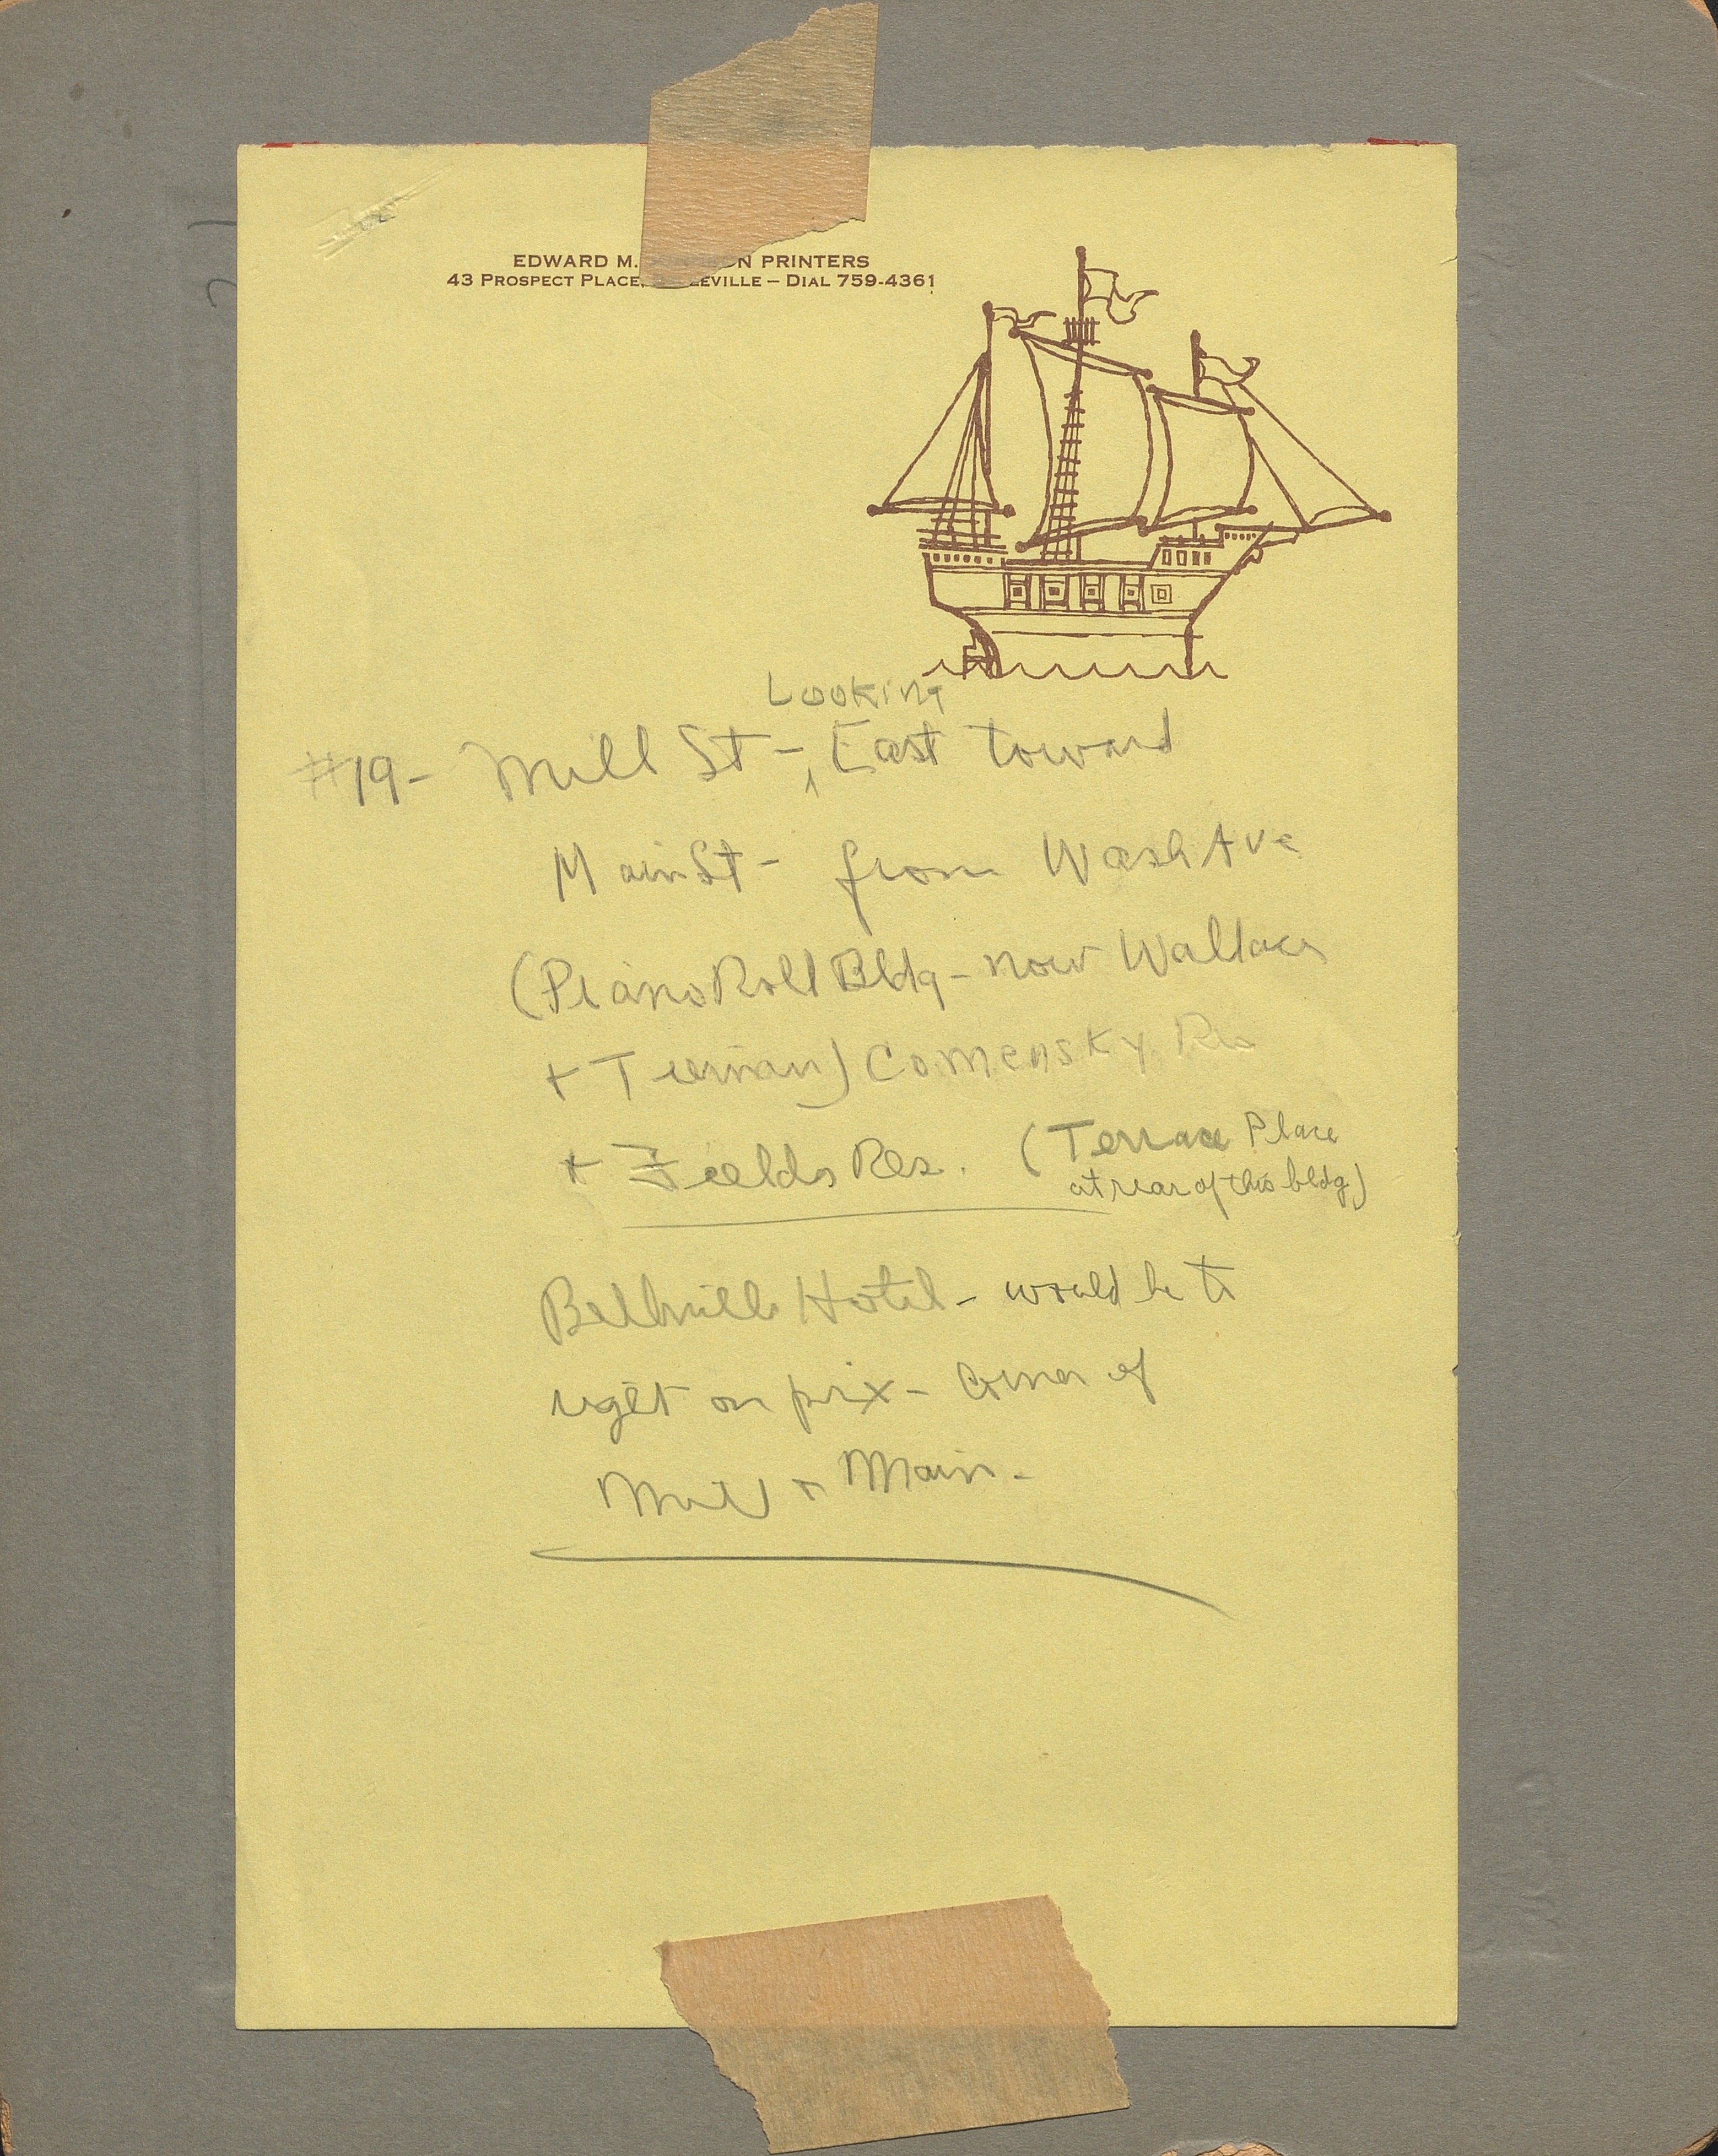 EDWARD M. PRINTERS
43 PROSPECT PLACE, EVILLE — DIAL 759-4361
Looking
#19- Mill St - East toward
Main St - from Wash Ave
(Piano Roll Bldg - now Wallace
+ Tiernan) Comensky Res
+ Fields Res. (Terrace Place
at rear of this bldg)
Belleville Hotel - would be to
right on pix - corner of
Mill + Main -